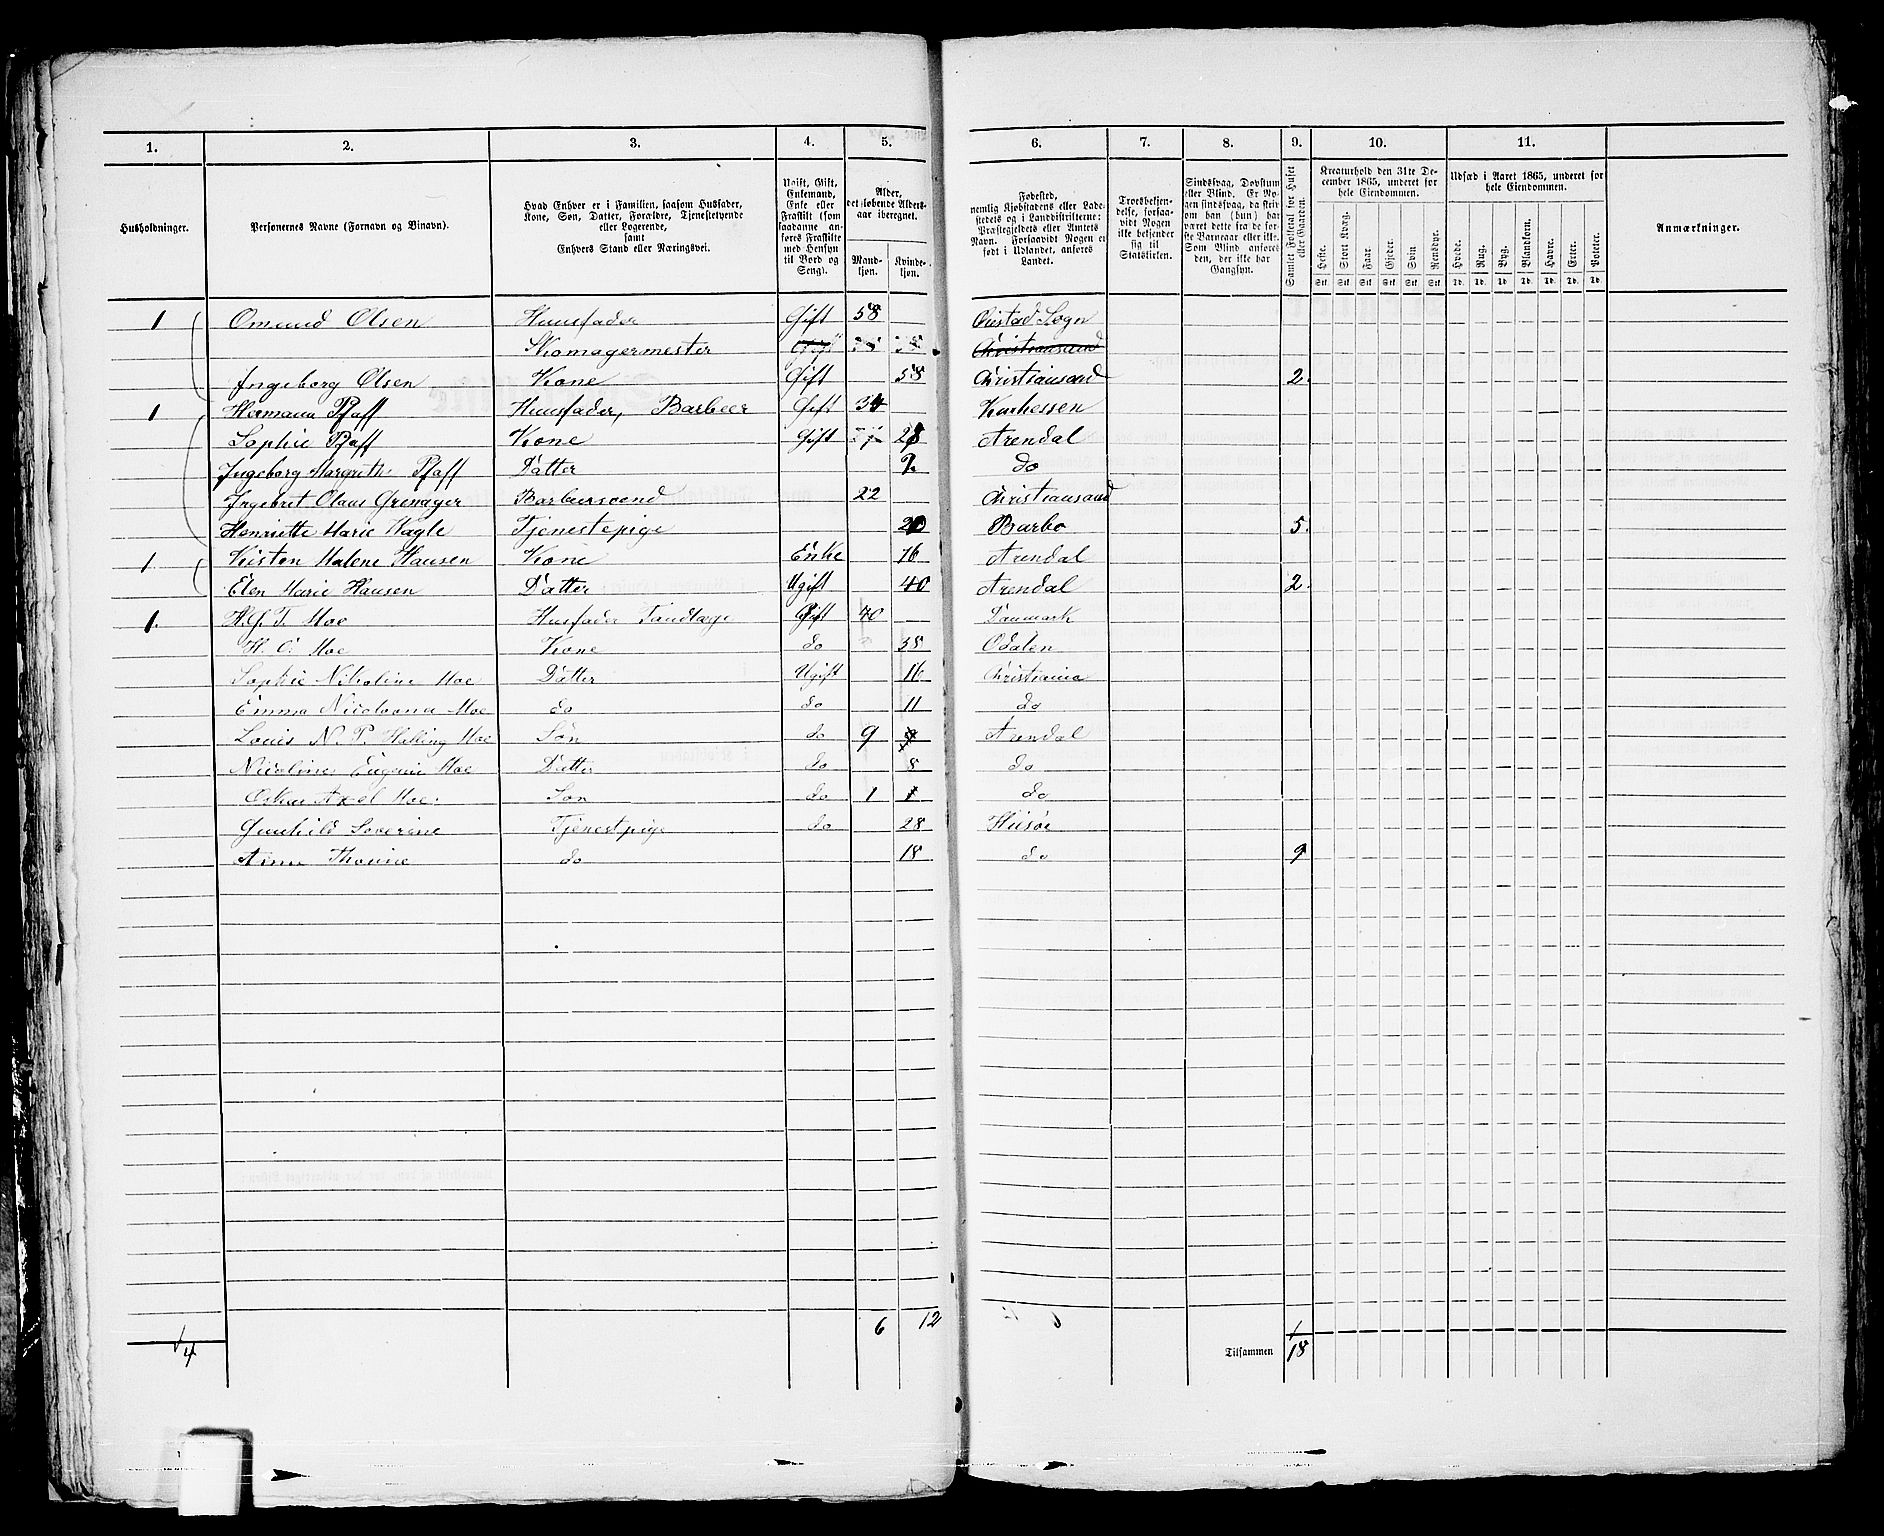 1. 2. 3. 4. 5. 6. 7. 8. 9. 10. 11.
Husholdninger.
Personernes Navne (Fornavn og Binavn).
Hvad Enhver er i Familien, saasom Husfader,
Kone, Søn, Datter, Forældre, Tjenestetyende
eller Logerende,
samt
Enhvers Stand eller Næringsvei.
Ugift, Gift,
Enkemand,
Enke eller
Fraskilt (som
saadanne an-
føres Fraskilte
med Hensyn
til Bord og
Seng).
Alder,
det løbende Alders-
aar iberegnet.
Mand-
kjøn.
Kvinde-
kjøn.
Fødested,
nemlig Kjøbstadens eller Lade-
stedets og i Landdistrikterne:
Præstegjeldets eller Amtets
Navn. Forsaavidt Nogen er
født i Udlandet, anføres
Landet.
Troesbekjen-
delse, forsaa-
vidt Nogen
ikke bekjender
sig til
Statskirken.
Sindssvag, Døvstum
eller Blind. Er No-
gen sindssvag, da skriv
om han (hun) har
været dette fra de før-
ste Barneaar eller ikke.
Som Blind anføres
den, der ikke har
Gangsyn.
Samlet Folketal for Huset
eller Gaarden.
Kreaturhold den 31te De-
cember 1865, underet for
hele Eiendommen.
Heste. Stort Kvæg. Faar. Gjeder. Svin Rensdyr.
Stk Stk Stk Stk Stk Stk
Udsæd i Aaret 1865, underet for
hele Eiendommen.
Hvede. Rug. Byg. Blandkorn. Havre. Erter. Poteter.
Td. Td. Td. Td. Td. Td. Td.
Anmærkninger.
1 Omund Olsen Huusfader Gift 58 Øiestad Sogn
Skomagermester Gift Christiansand
Ingeborg Olsen Kone Gift 58 Christiansand 2.
1 Hermann Pfaff Huusfader, Barbeer Gift 34 Kurhessen
Sophie Pfaff Kone Gift 28 Arendal
Ingeborg Margrethe Pfaff Datter 2. do
Ingebret Olaus Grenager Barbeersvend 22 Christiansand
Henriette Marie Nagle Tjenestepige 20 Barbo 5.
1. Kisten Malene Hansen Kone Enke 76 Arendal
Elen Marie Hansen Datter Ugift 40 Arendal 2.
1. H. J. T. Moe Husfader Tandlæge Gift 40 Danmark
H. O. Moe Kone do 38 Odalen
Sophie Nikoline Moe Datter Ugift 16 Christiania
Emma Nicoloona Moe do do 11 do
Louis N. P. Halling Moe Søn do 9 9 Arendal
Nicoline Eugenie Moe Datter do 8 do
Oskar Axel Moe. Søn do 1 1 do
Gunhild Severine Tjenestpige do 28 Hisøe
Anne Thomine do 18 do 9
6 12
4
Tilsammen 18